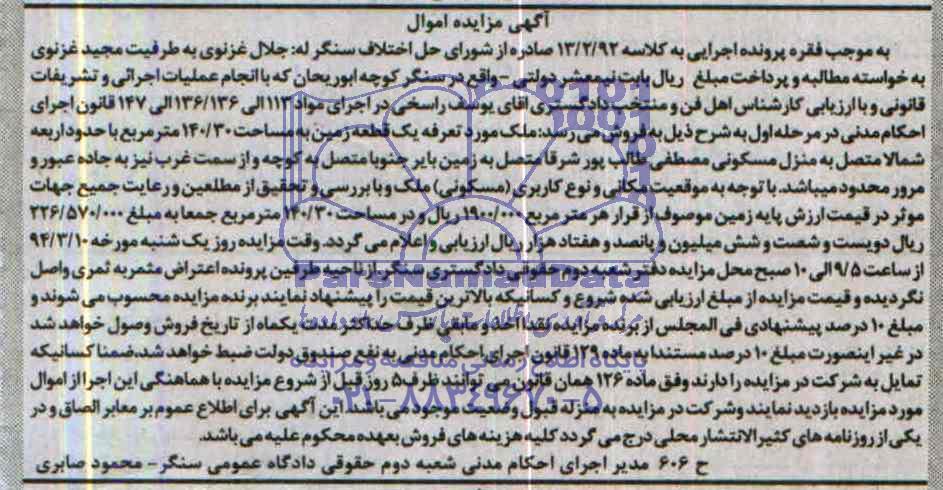 آگهی مزایده اموال
به موجب فقره پرونده اجرایی به کلاسه ۱۳/۲/۹۲ صادره از شورای حل اختلاف سنگر له: جلال غزنوی به طرفیت مجید غزنوی
به خواسته مطالبه و پرداخت مبلغ ریال بابت نیمعشر دولتی - واقع در سنگر کوچه ابوریحان که با انجام عملیات اجرائی و تشریفات
قانونی و با ارزیابی کارشناس اهل فن و منتخب دادگستری آقای یوسف راسخی در اجرای مواد ۱۱۳ الی ۱۳۶/۱۳۶ الی ۱۴۷ قانون اجرای
احکام مدنی در مرحله اول به شرح ذیل به فروش می رسد: ملک مورد تعرفه یک قطعه زمین به مساحت ۱۴۰/۳۰ متر مربع با حدود اربعه
شمالا متصل به منزل مسکونی مصطفی طالب پور شرقا متصل به زمین بایر جنوبا متصل به کوچه و از سمت غرب نیز به جاده عبور و
مرور محدود میباشد. با توجه به موقعیت مکانی و نوع کاربری (مسکونی) ملک و با بررسی و تحقیق از مطلعین و رعایت جمیع جهات
موثر در قیمت ارزش پایه زمین موصوف از قرار هر متر مربع ۱۹۰۰/۰۰۰ ریال و در مساحت ۱۴۰/۳۰ متر مربع جمعا به مبلغ ۲۲۶/۵۷۰/۰۰۰
ریال دویست و شصت و شش میلیون و پانصد و هفتاد هزار ریال ارزیابی و اعلام می گردد. وقت مزایده روز یک شنبه مورخه ۹۴/۳/۱۰
از ساعت ۹/۵ الی ۱۰ صبح محل مزایده دفتر شعبه دوم حقوقی دادگستری سنگر از ناحیه طرفین پرونده اعتراض مثمر به ثمری واصل
نگردیده و قیمت مزایده از مبلغ ارزیابی شده شروع و کسانیکه بالاترین قیمت را پیشنهاد نمایند برنده مزایده محسوب می شوند و
مبلغ ۱۰ درصد پیشنهادی فی المجلس از برنده مزایده نقدا اخذ و مابقی ظرف حداکثر مدت یکماه از تاریخ فروش وصول خواهد شد
در غیر اینصورت مبلغ ۱۰ درصد مستندا به ماده ۱۲۹ قانون اجرای احکام مدنی به نفع صندوق دولت ضبط خواهد شد، ضمنا کسانیکه
تمایل به شرکت در مزایده را دارند وفق ماده ۱۲۶ همان قانون می توانند ظرف ۵ روز قبل از شروع مزایده با هماهنگی این اجرا از اموال
مورد مزایده بازدید نمایند و شرکت در مزایده به منزله قبول وضعیت موجود می باشد. این آگهی برای اطلاع عموم بر معابر الصاق و در
یکی از روزنامه های کثیرالانتشار محلی درج می گردد کلیه هزینه های فروش بعهده محکوم علیه می باشد.
ح ۶۰۶ مدیر اجرای احکام مدنی شعبه دوم حقوقی دادگاه عمومی سنگر - محمود صابری
ParsNamadData
پایگاه اطلاع رسانی مناقصه و مزایده
۰۲۱-۸۸۳۴۹۶۷۰-۵